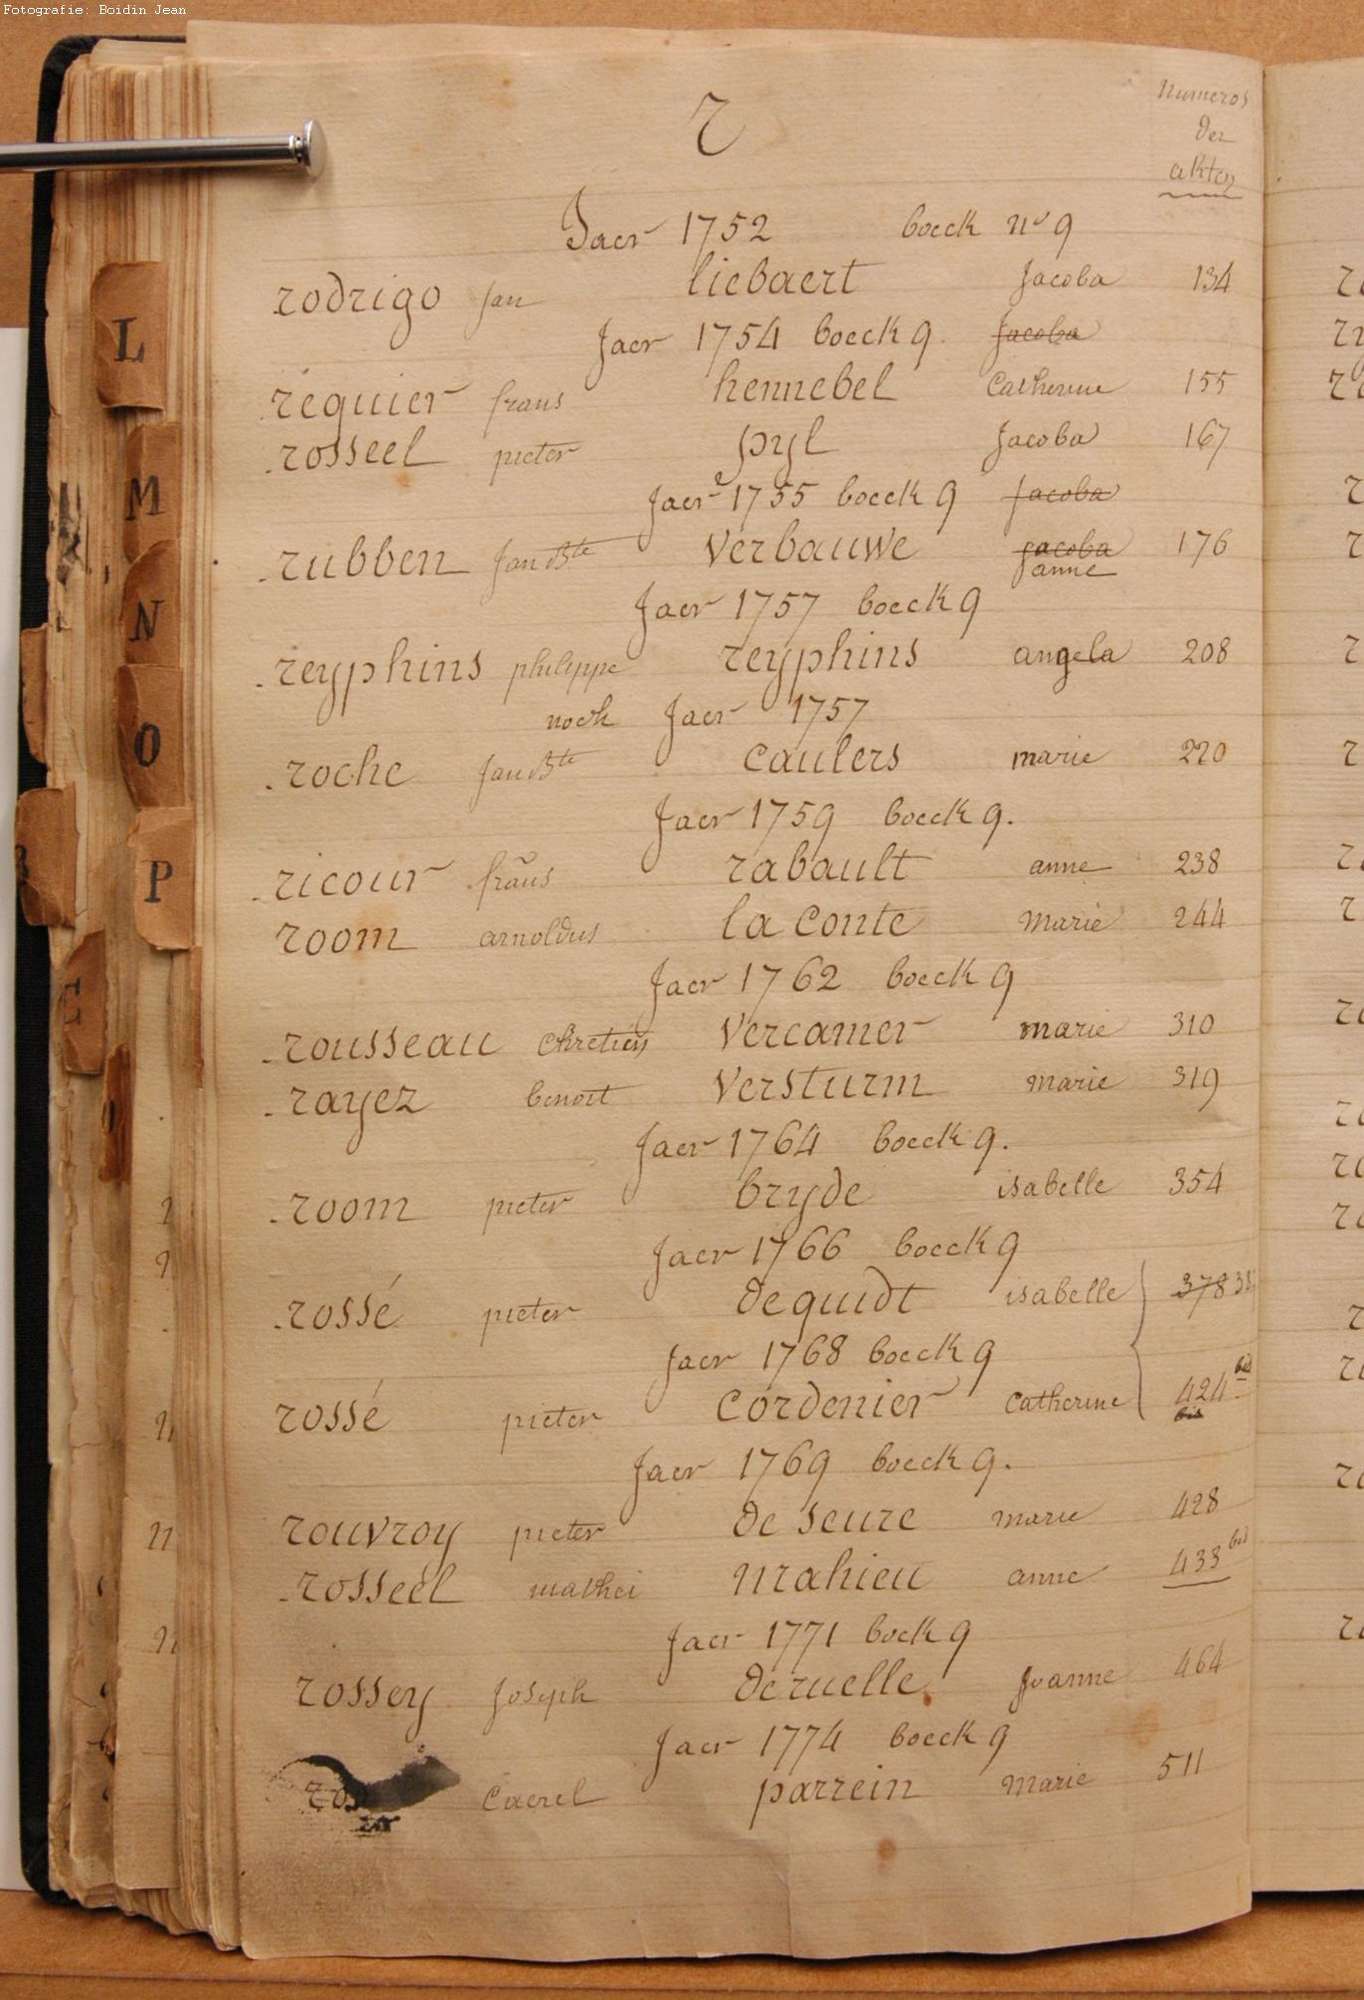 Fotografie: Boidin Jean
Numeros
der
akten
R
Jaer 1752 boeck no 9
rodrigo jan liebaert Jacoba 134
Jaer 1754 boeck 9. Jacoba
requier frans hennebel Catherine 155
rosseel pieter pyl Jacoba 167
Jaer 1755 boeck 9 Jacoba
rubben jan Bte Verbauwe Jacoba 176
Janne
Jaer 1757 boeck 9
reyphins philippe reyphins angela 208
noch Jaer 1757
roche jan Bte caulers marie 220
Jaer 1759 boeck 9.
ricour frans rabault anne 238
room arnoldus la Conte Marie 244
Jaer 1762 boeck 9
rousseau Chretien Vercamer marie 310
rayez benoit Versturm marie 319
Jaer 1764 boeck 9.
room pieter bryde isabelle 354
Jaer 1766 boeck 9
rossé pieter dequidt isabelle 378
Jaer 1768 boeck 9
rossé pieter Cordenier Catherine 424 bis
bis
Jaer 1769 boeck 9.
rouvroy pieter de seure marie 428
rosseel mathei Mahieu anne 433 bis
Jaer 1771 boek 9
rossey Joseph deruelle Joanne 464
Jaer 1774 boeck 9
Caerel parrein Marie 511
L
M
N
O
P